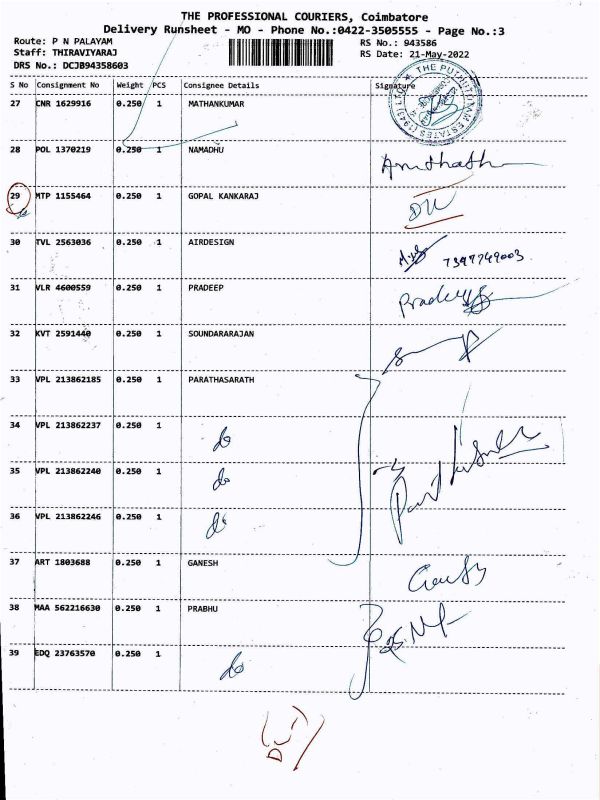 THE PROFESSIONAL COURIERS, Coimbatore
Delivery Runsheet - MO - Phone No.:0422-3505555 - Page No.:3
Route: P N PALAYAM
RS No.: 943586
Staff: THIRAVIYARAJ
RS Date: 21-May-2022
DRS No.: DCJB94358603
S No Consignment No Weight PCS Consignee Details Signature
27 CNR 1629916 0.250 1 MATHANKUMAR
28 POL 1370219 0.250 1 NAMADHU
29 MTP 1155464 0.250 1 GOPAL KANKARAJ
30 TVL 2563036 0.250 1 AIRDESIGN 7397749003
31 VLR 4600559 0.250 1 PRADEEP
32 KVT 2591440 0.250 1 SOUNDARARAJAN
33 VPL 213862185 0.250 1 PARATHASARATH
34 VPL 213862237 0.250 1 do
35 VPL 213862240 0.250 1 do
36 VPL 213862246 0.250 1 do
37 ART 1803688 0.250 1 GANESH
38 MAA 562216630 0.250 1 PRABHU
39 EDQ 23763570 0.250 1 do